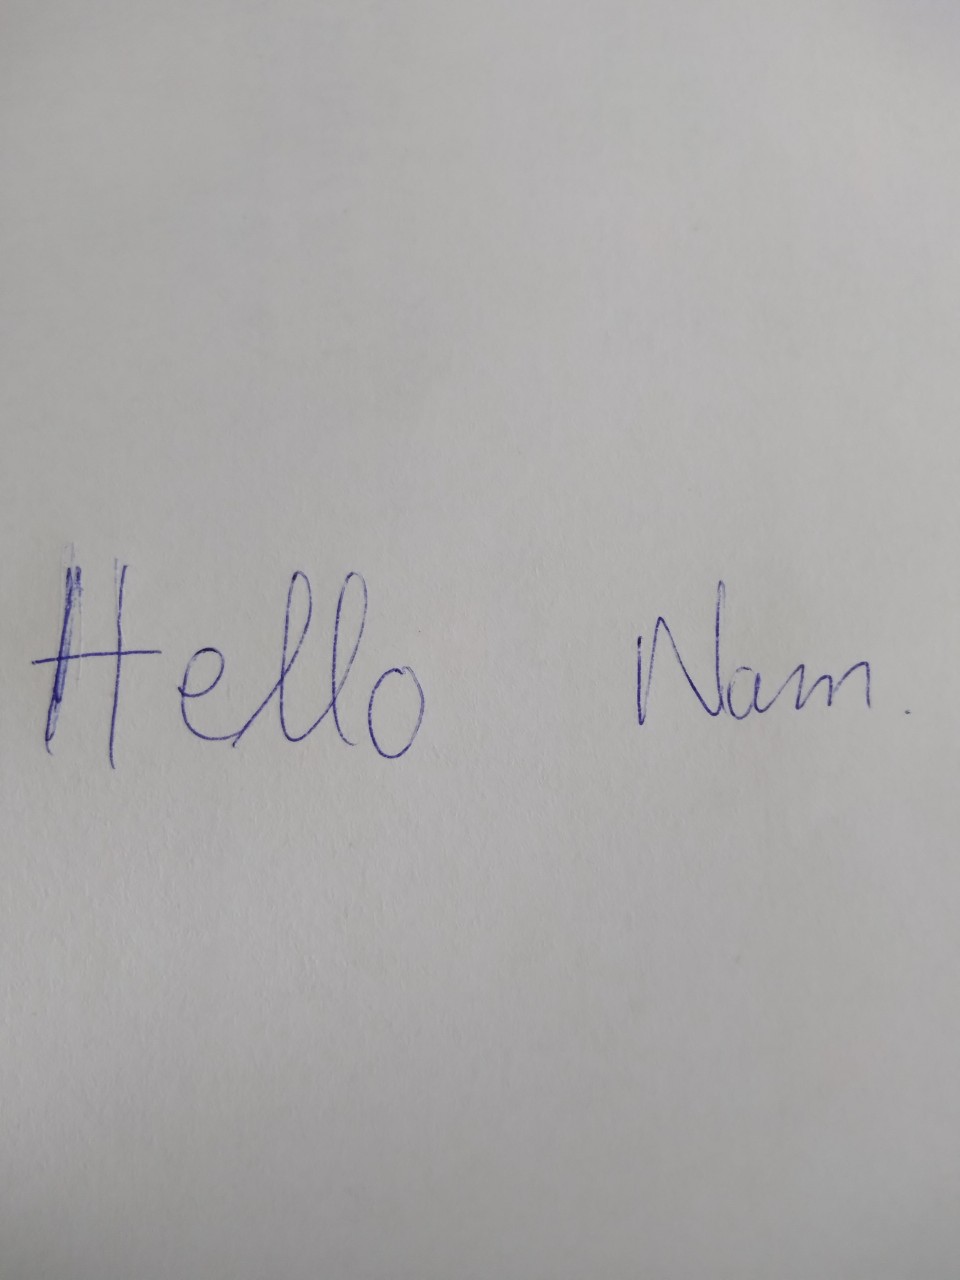 Hello Nam.